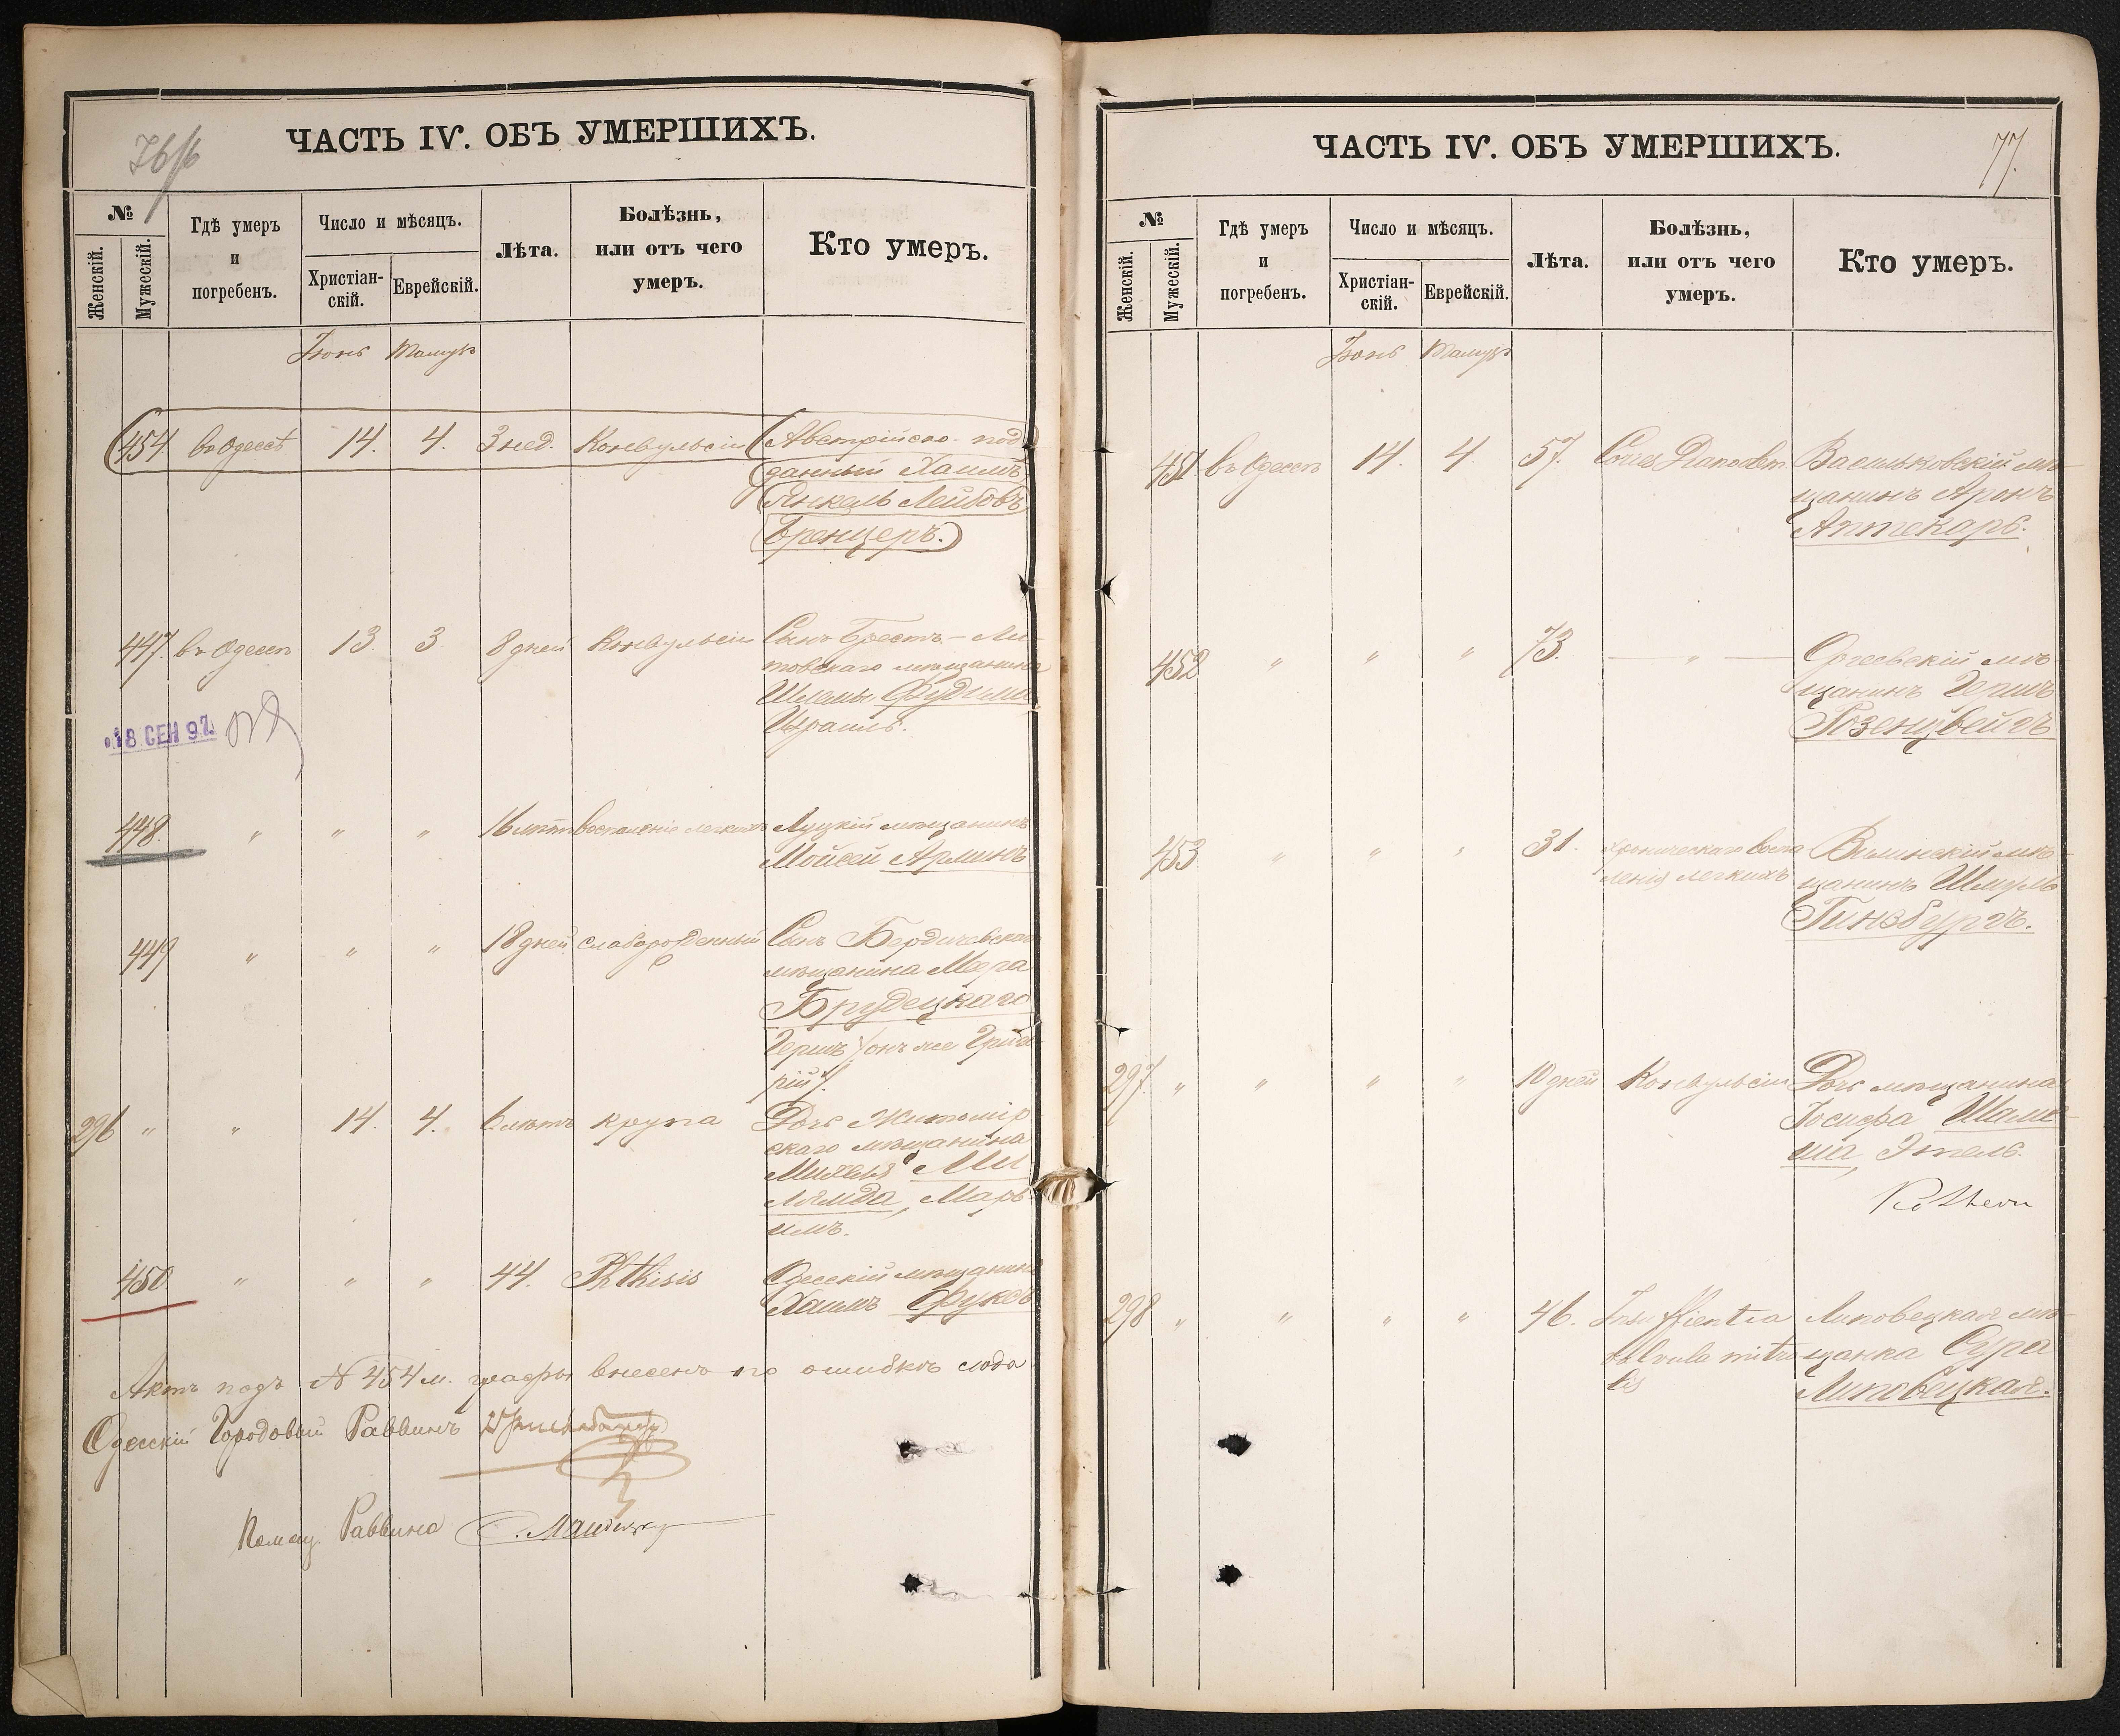 76/б
ЧАСТЬ IV. ОБЪ УМЕРШИХЪ.
№
Женскій.
Мужескій.
Гдѣ умеръ
и
погребенъ.
Число и мѣсяцъ.
Христіан-
скій.
Еврейскій.
Лѣта.
Болѣзнь,
или отъ чего
умеръ.
Кто умеръ.
Іюнь Тамузъ
454. въ Одессѣ 14. 4. 3 нед. Конвульсіи Австрійско-под
данный Хаимъ
Янкель Лейбовъ
Бренцеръ.
447. въ Одессѣ 13. 3. 8 дней Конвульсіи Сынъ Брестъ-Ли-
товскаго мѣщанина
Шлемы Фудима
Израиль.
18 СЕН 97.
448. " " " 16 лѣтъ воспаленіе легкихъ Луцкій мѣщанинъ
Мойсей Арлинъ
449 " " " 18 дней слаборожденный Сынъ Бердичевскаго
мѣщанина Меера
Брудецкаго
Гершъ /онъ же Григо
рій/.
296 " " 14. 4. 6 лѣтъ крупа Дочь Житомір
скаго мѣщанина
Михеля Ми
лямда, Марь
имъ.
450. " " " 44. Phthisis Одесскій мѣщанинъ
Хаимъ Фуксъ
Актъ подъ № 454 м. графы внесенъ по ошибкѣ сюда
Одесскій Городовый Раввинъ
Помощ. Раввина
ЧАСТЬ IV. ОБЪ УМЕРШИХЪ.
77.
№
Женскій.
Мужескій.
Гдѣ умеръ
и
погребенъ.
Число и мѣсяцъ.
Христіан-
скій.
Еврейскій.
Лѣта.
Болѣзнь,
или отъ чего
умеръ.
Кто умеръ.
Іюнь Тамузъ
451. въ Одессѣ 14. 4. 57. Васильковскій мѣ-
щанинъ Аронъ
Аптекарь.
452 " " " 73. — " — Оргеевскій мѣ-
щанинъ Гершъ
Розенцвейгъ
453 " " " 31. хроническаго воспа Виленскій мѣ-
ленія легкихъ щанинъ Шмуль
Гинзбургъ.
297. " " " " 10 дней Конвульсіи Дочь мѣщанина
Іосифа Шама-
ша, Этель.
298 " " " " 46. Insuffientia Липовецкая мѣ-
valvula mitra щанка Сура
lis Липовецкая.